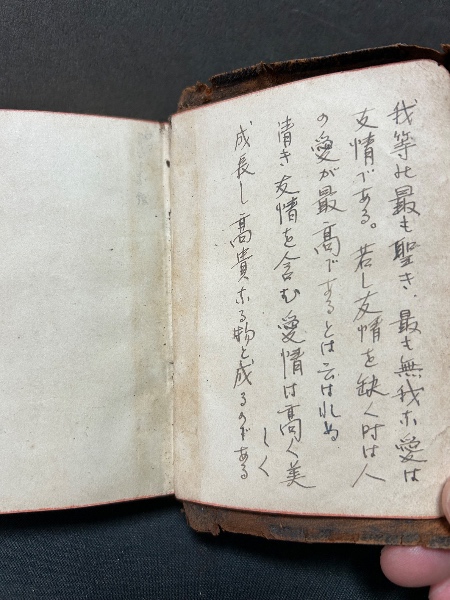 我等の最も聖き、最も無我な愛は
友情である。若し友情を缺く时は人
の愛が最高であるとは云はれぬ
清き友情を含む愛情は高く美
しく
成長し高貴なる物と成るのである